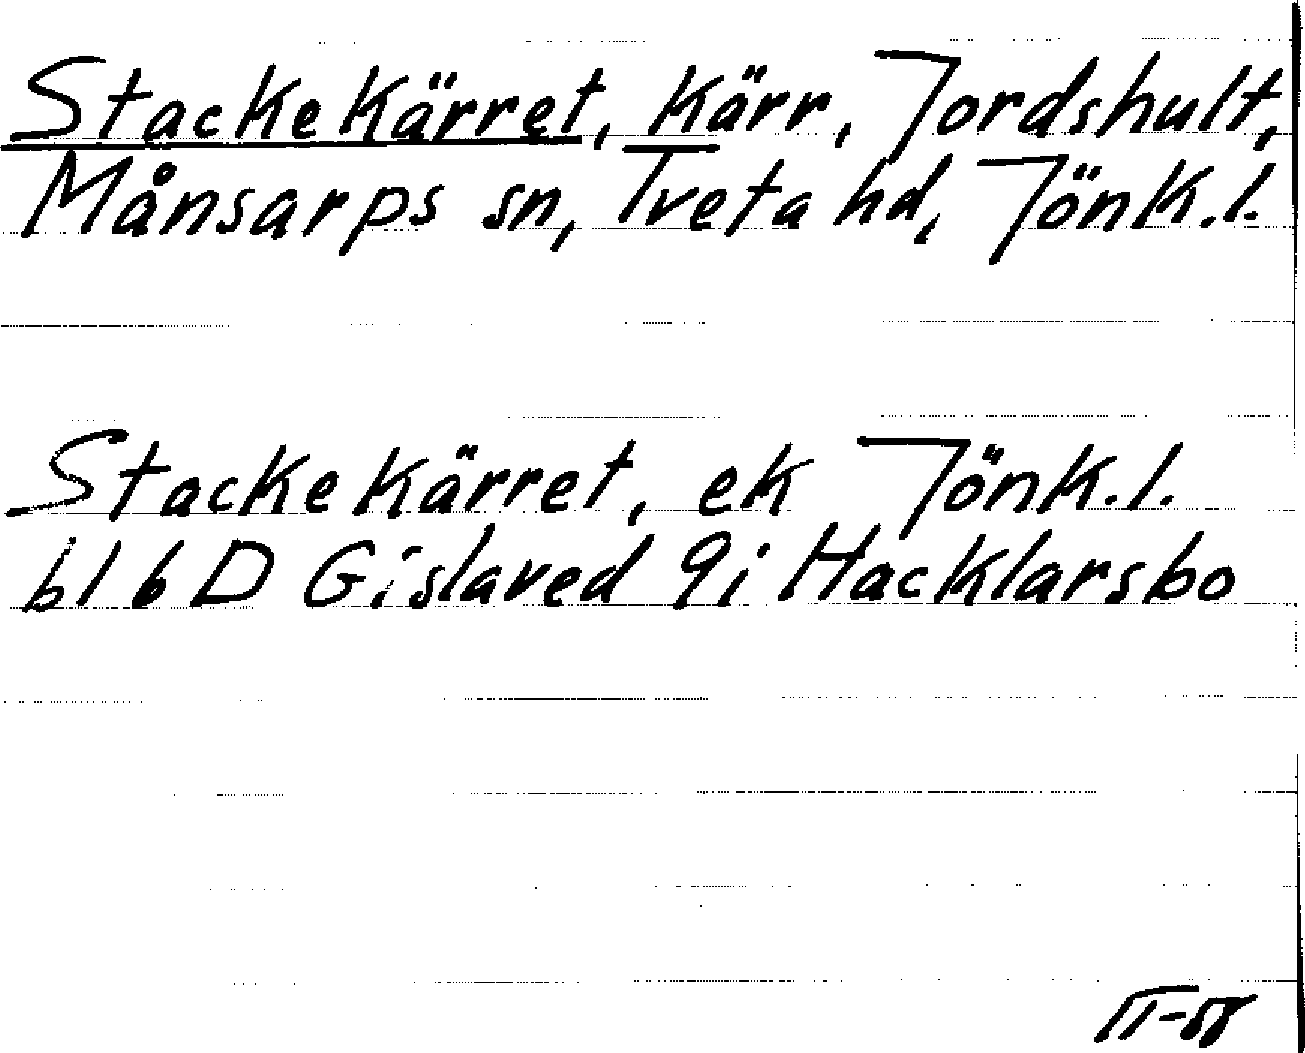 Stackekärret, kärr, Jordshult,
Månsarps sn, Tveta hd, Jönk.l.
Stackekärret, ek Jönk.l.
bl 6 D Gislaved 9i Hacklarsbo